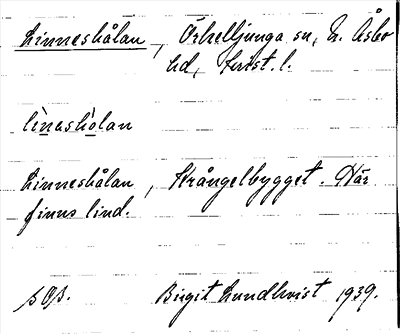 Linneshålan, Örkelljunga sn, N. Åsbo
hd, Krist. l.
lìnashòlan
Linneshålan, Krångelbygget. Här
finns lind.
s Ob. Birgit Lundkvist 1939.